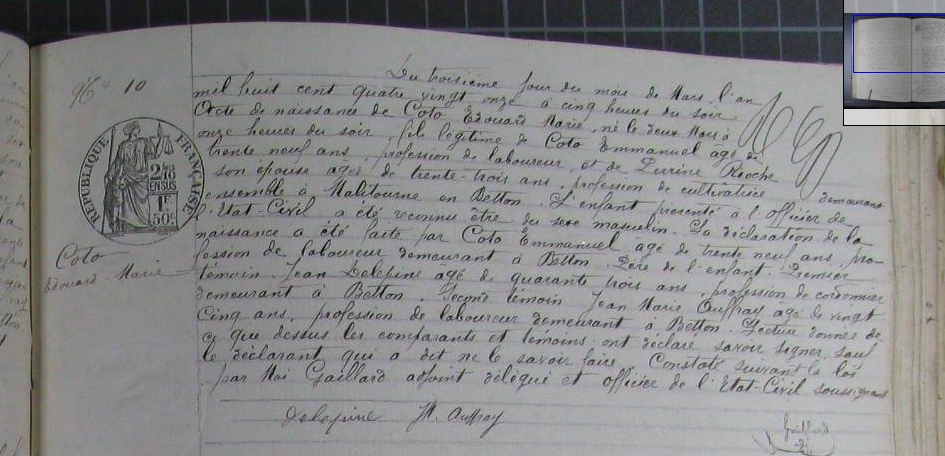 N° 10
Coto
Edouard Marie
RÉPUBLIQUE FRANÇAISE
2/10 EN SUS
1F
50c
Du troisième jour du mois de Mars, l'an
mil huit cent quatre vingt onze à cinq heures du soir
Acte de naissance de Coto Edouard Marie, né le deux Mars à
onze heures du soir, fils légitime de Coto Emmanuel âgé de
trente neuf ans, profession de laboureur et de Perrine
son épouse âgée de trente-trois ans, profession de cultivatrice demeurans
ensemble à Malitourne en Betton. L'enfant présenté à l'officier de
l'Etat-Civil a été reconnu être du sexe masculin. La déclaration de la
naissance a été faite par Coto Emmanuel agé de trente neuf ans, pro-
fession de laboureur demeurant à Betton. Père de l'enfant. Premier
témoin Jean Delepine agé de quarante trois ans, profession de cordonnier
demeurant à Betton. Second témoin Jean Marie Auffray agé de vingt
cinq ans, profession de laboureur demeurant à Betton. Lecture donnée de
ce que dessus les comparants et temoins ont déclaré savoir signer, sauf
le déclarant qui a dit ne le savoir faire. Constaté suivant la loi
par Moi Gaillard adjoint délégué et officier de l'Etat-Civil soussignant
Delepine JM. Auffray
Gaillard
adj